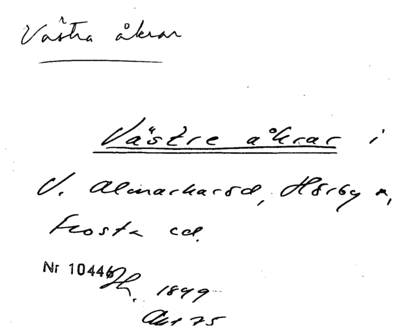 Västra åkrar
Västre åkrar i
V. Almarharad, Hörby s,
Frosta hd.
Nr 10446
Lh. 1849
Akt 75